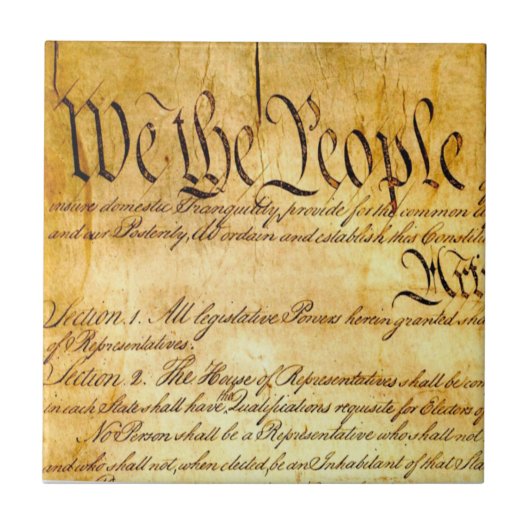 We the People
insure domestic Tranquility, provide for the common
and our Posterity, do ordain and establish this Constitu
Arti
Section. 1. All legislative Powers herein granted sha
of Representatives.
Section. 2. The House of Representatives shall be com
in each State shall have the Qualifications requisite for Electors of
No Person shall be a Representative who shall not
and who shall not, when elected, be an Inhabitant of that Sta